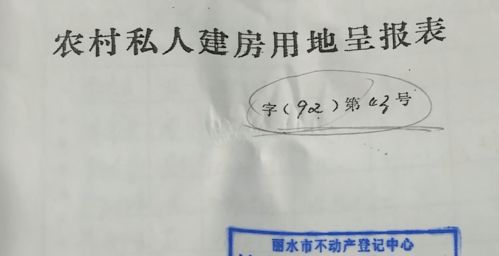 农村私人建房用地呈报表
字(92)第43号
丽水市不动产登记中心